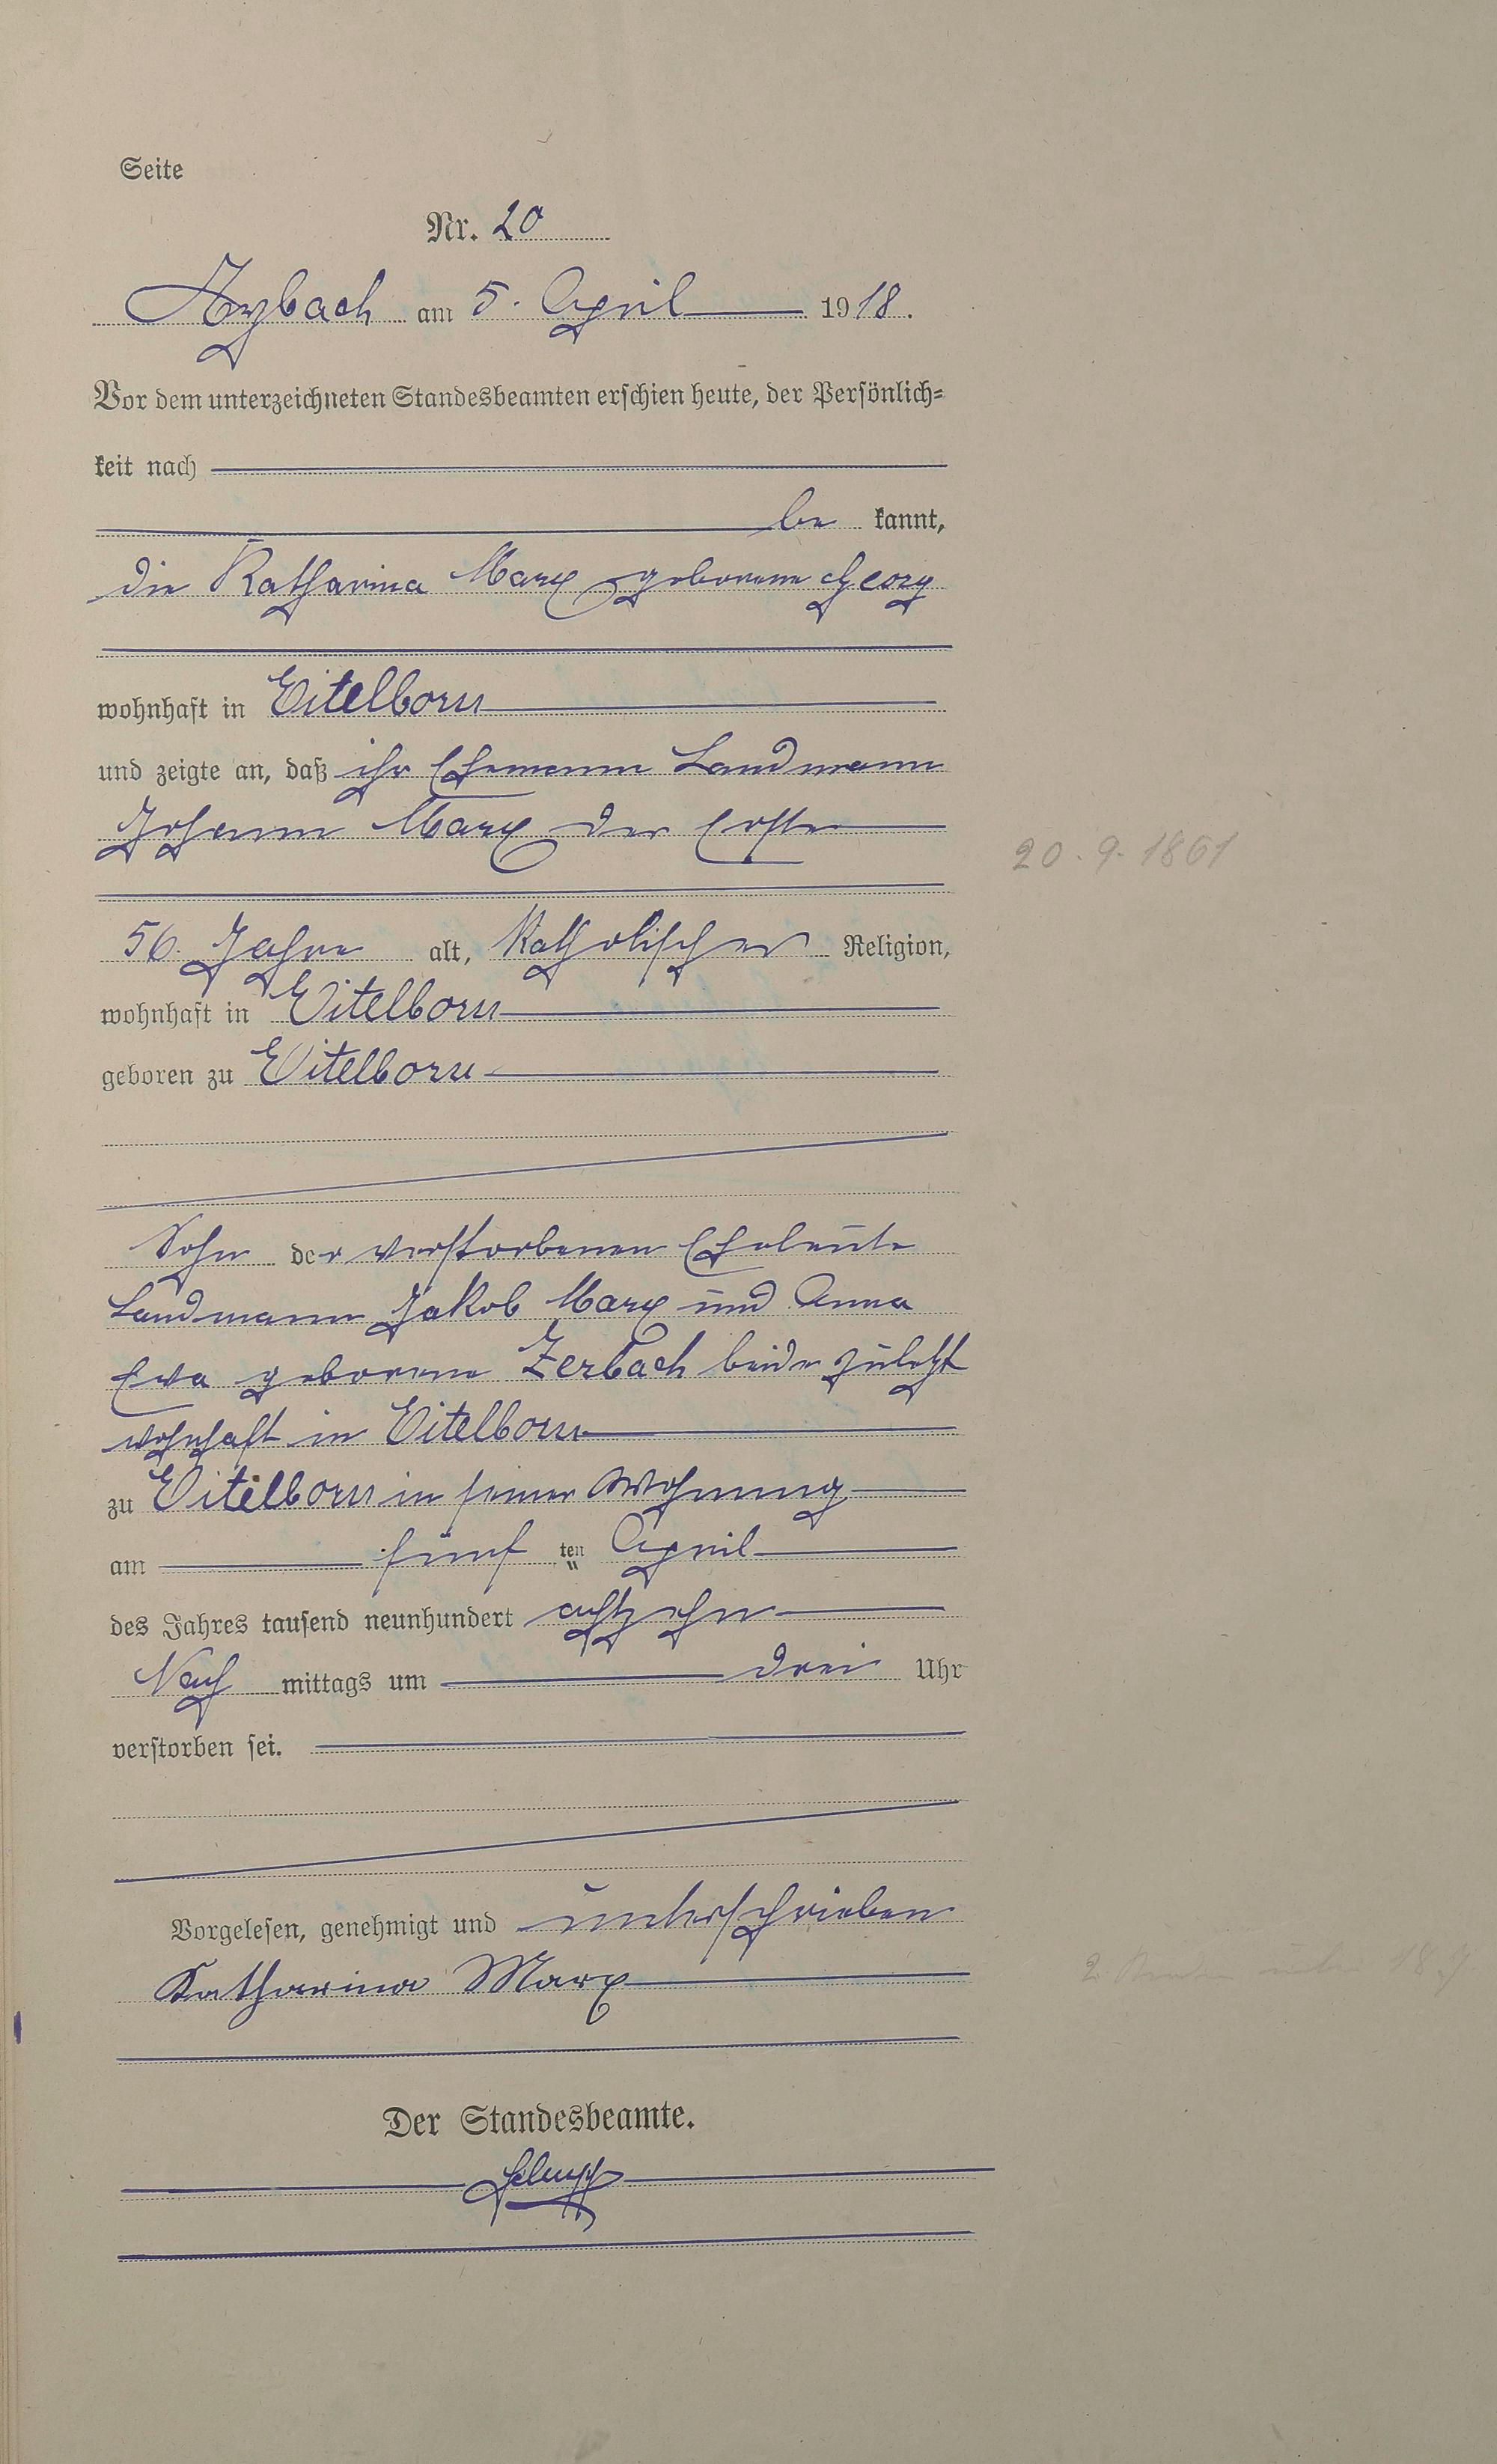 Seite
Nr. 20
Arzbach am 5. April 1918.
Vor dem unterzeichneten Standesbeamten erschien heute, der Persönlich=
keit nach
be kannt,
die Katharina Marx geborene Georg
wohnhaft in Eitelborn
und zeigte an, daß ihr Ehemann Landmann
Johann Marx der Erste
20.9.1861
56 Jahre alt, Katholischer Religion,
wohnhaft in Eitelborn
geboren zu Eitelborn
Sohn der verstorbenen Eheleute
Landmann Jakob Marx und Anna
Eva geborene Zerbach beide zuletzt
wohnhaft in Eitelborn
zu Eitelborn in seiner Wohnung
am fünf ten April
des Jahres tausend neunhundert achtzehn
Nach mittags um drei Uhr
verstorben sei.
Vorgelesen, genehmigt und unterschrieben
Katharina Marx
2 unter 18 J
Der Standesbeamte.